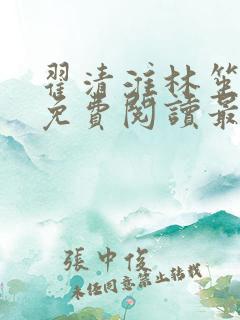 翟清淮林笙
免費閱讀最
張中俊
未任同意禁止转载